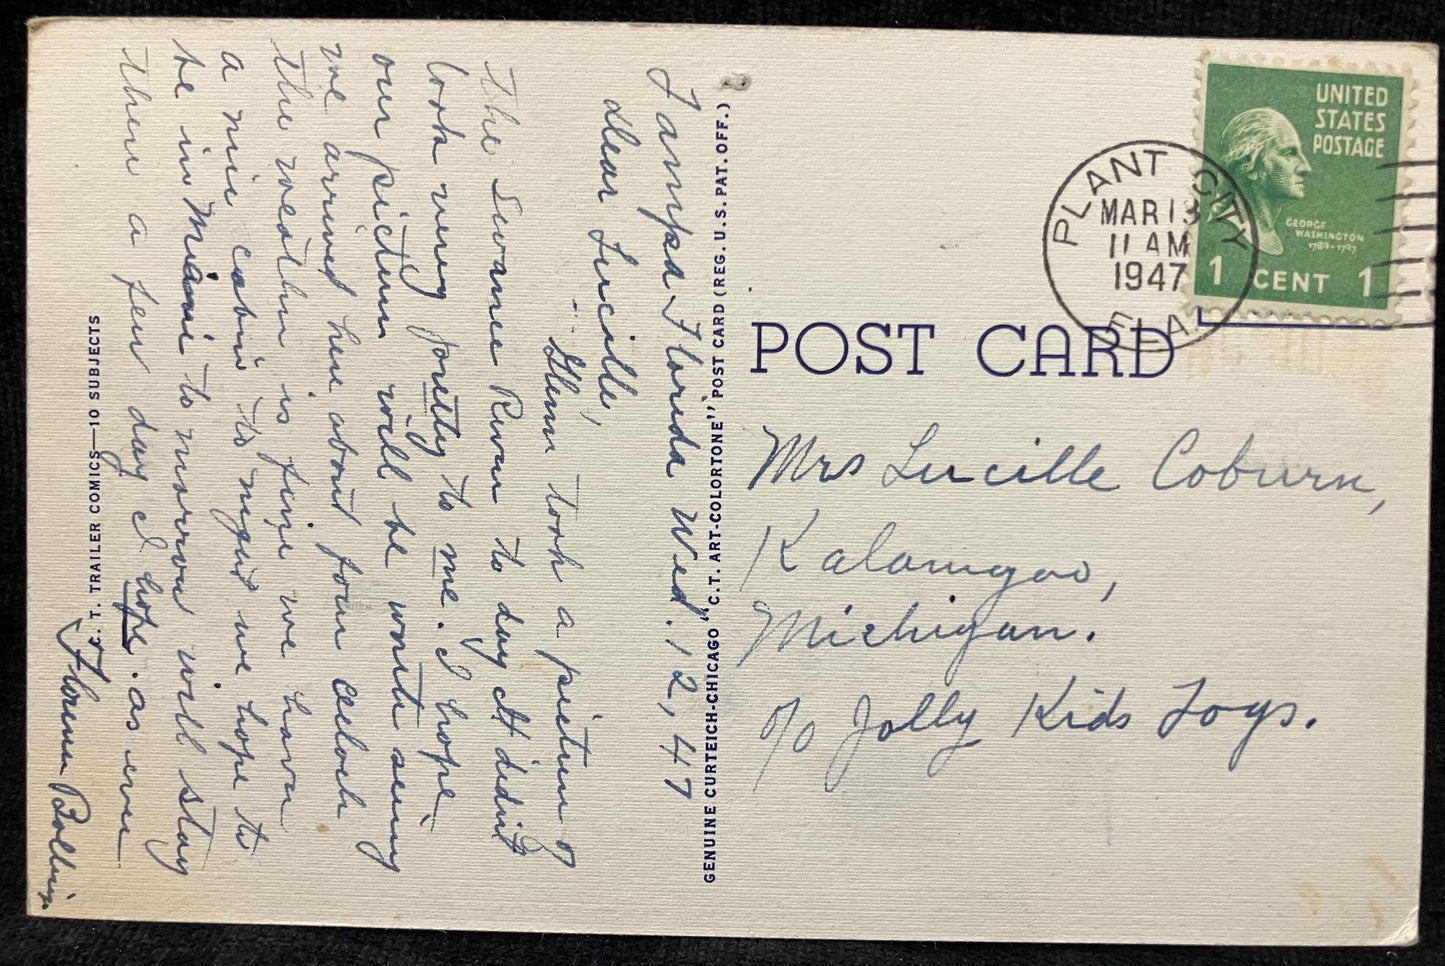 UNITED
STATES
POSTAGE
GEORGE
WASHINGTON
1789-1797
1 CENT 1
PLANT CITY
MAR 13
11 AM
1947
FLA.
POST CARD
Mrs Lucille Coburn,
Kalamgoo,
Michigan.
c/o Jolly Kids Toys.
GENUINE CURTEICH-CHICAGO "C.T. ART-COLORTONE" POST CARD (REG. U.S. PAT. OFF.)
Tampa Florida Wed. 12, 47
Dear Lucille,
Glenn took a picture of
the Swanee River to day it didn't
look very pretty to me. I hope
our picture will be worth seeing
we arrived here about four oclock
the weather is fine we have
a nice cabin to night we hope to
be in Miami to morrow will stay
there a few day I hope. as ever
Florence Bollin
C. T. TRAILER COMICS—10 SUBJECTS